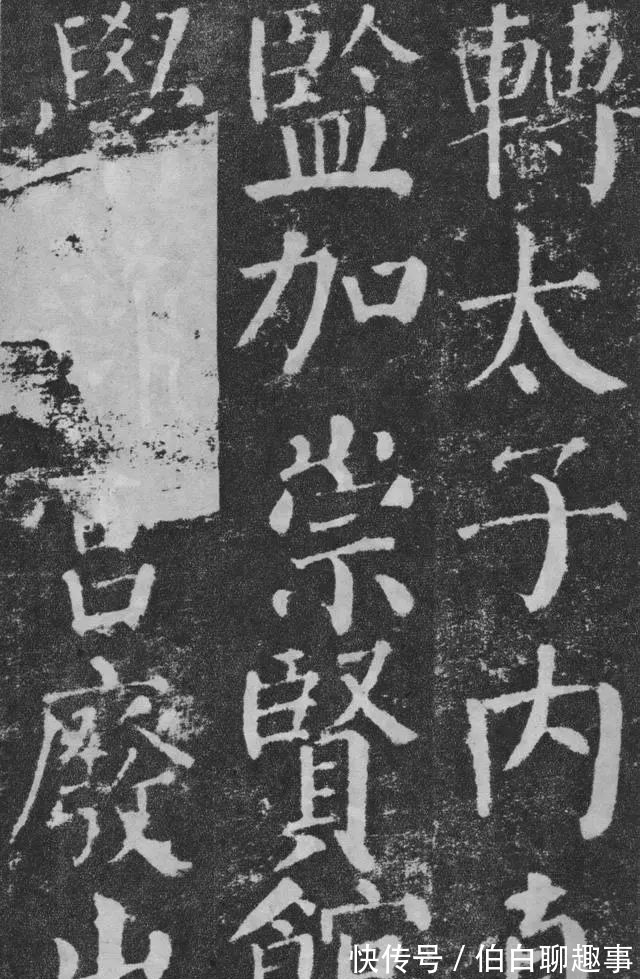 轉太子内直
監加崇賢館
學宫廢出
快传号 / 伯白聊趣事